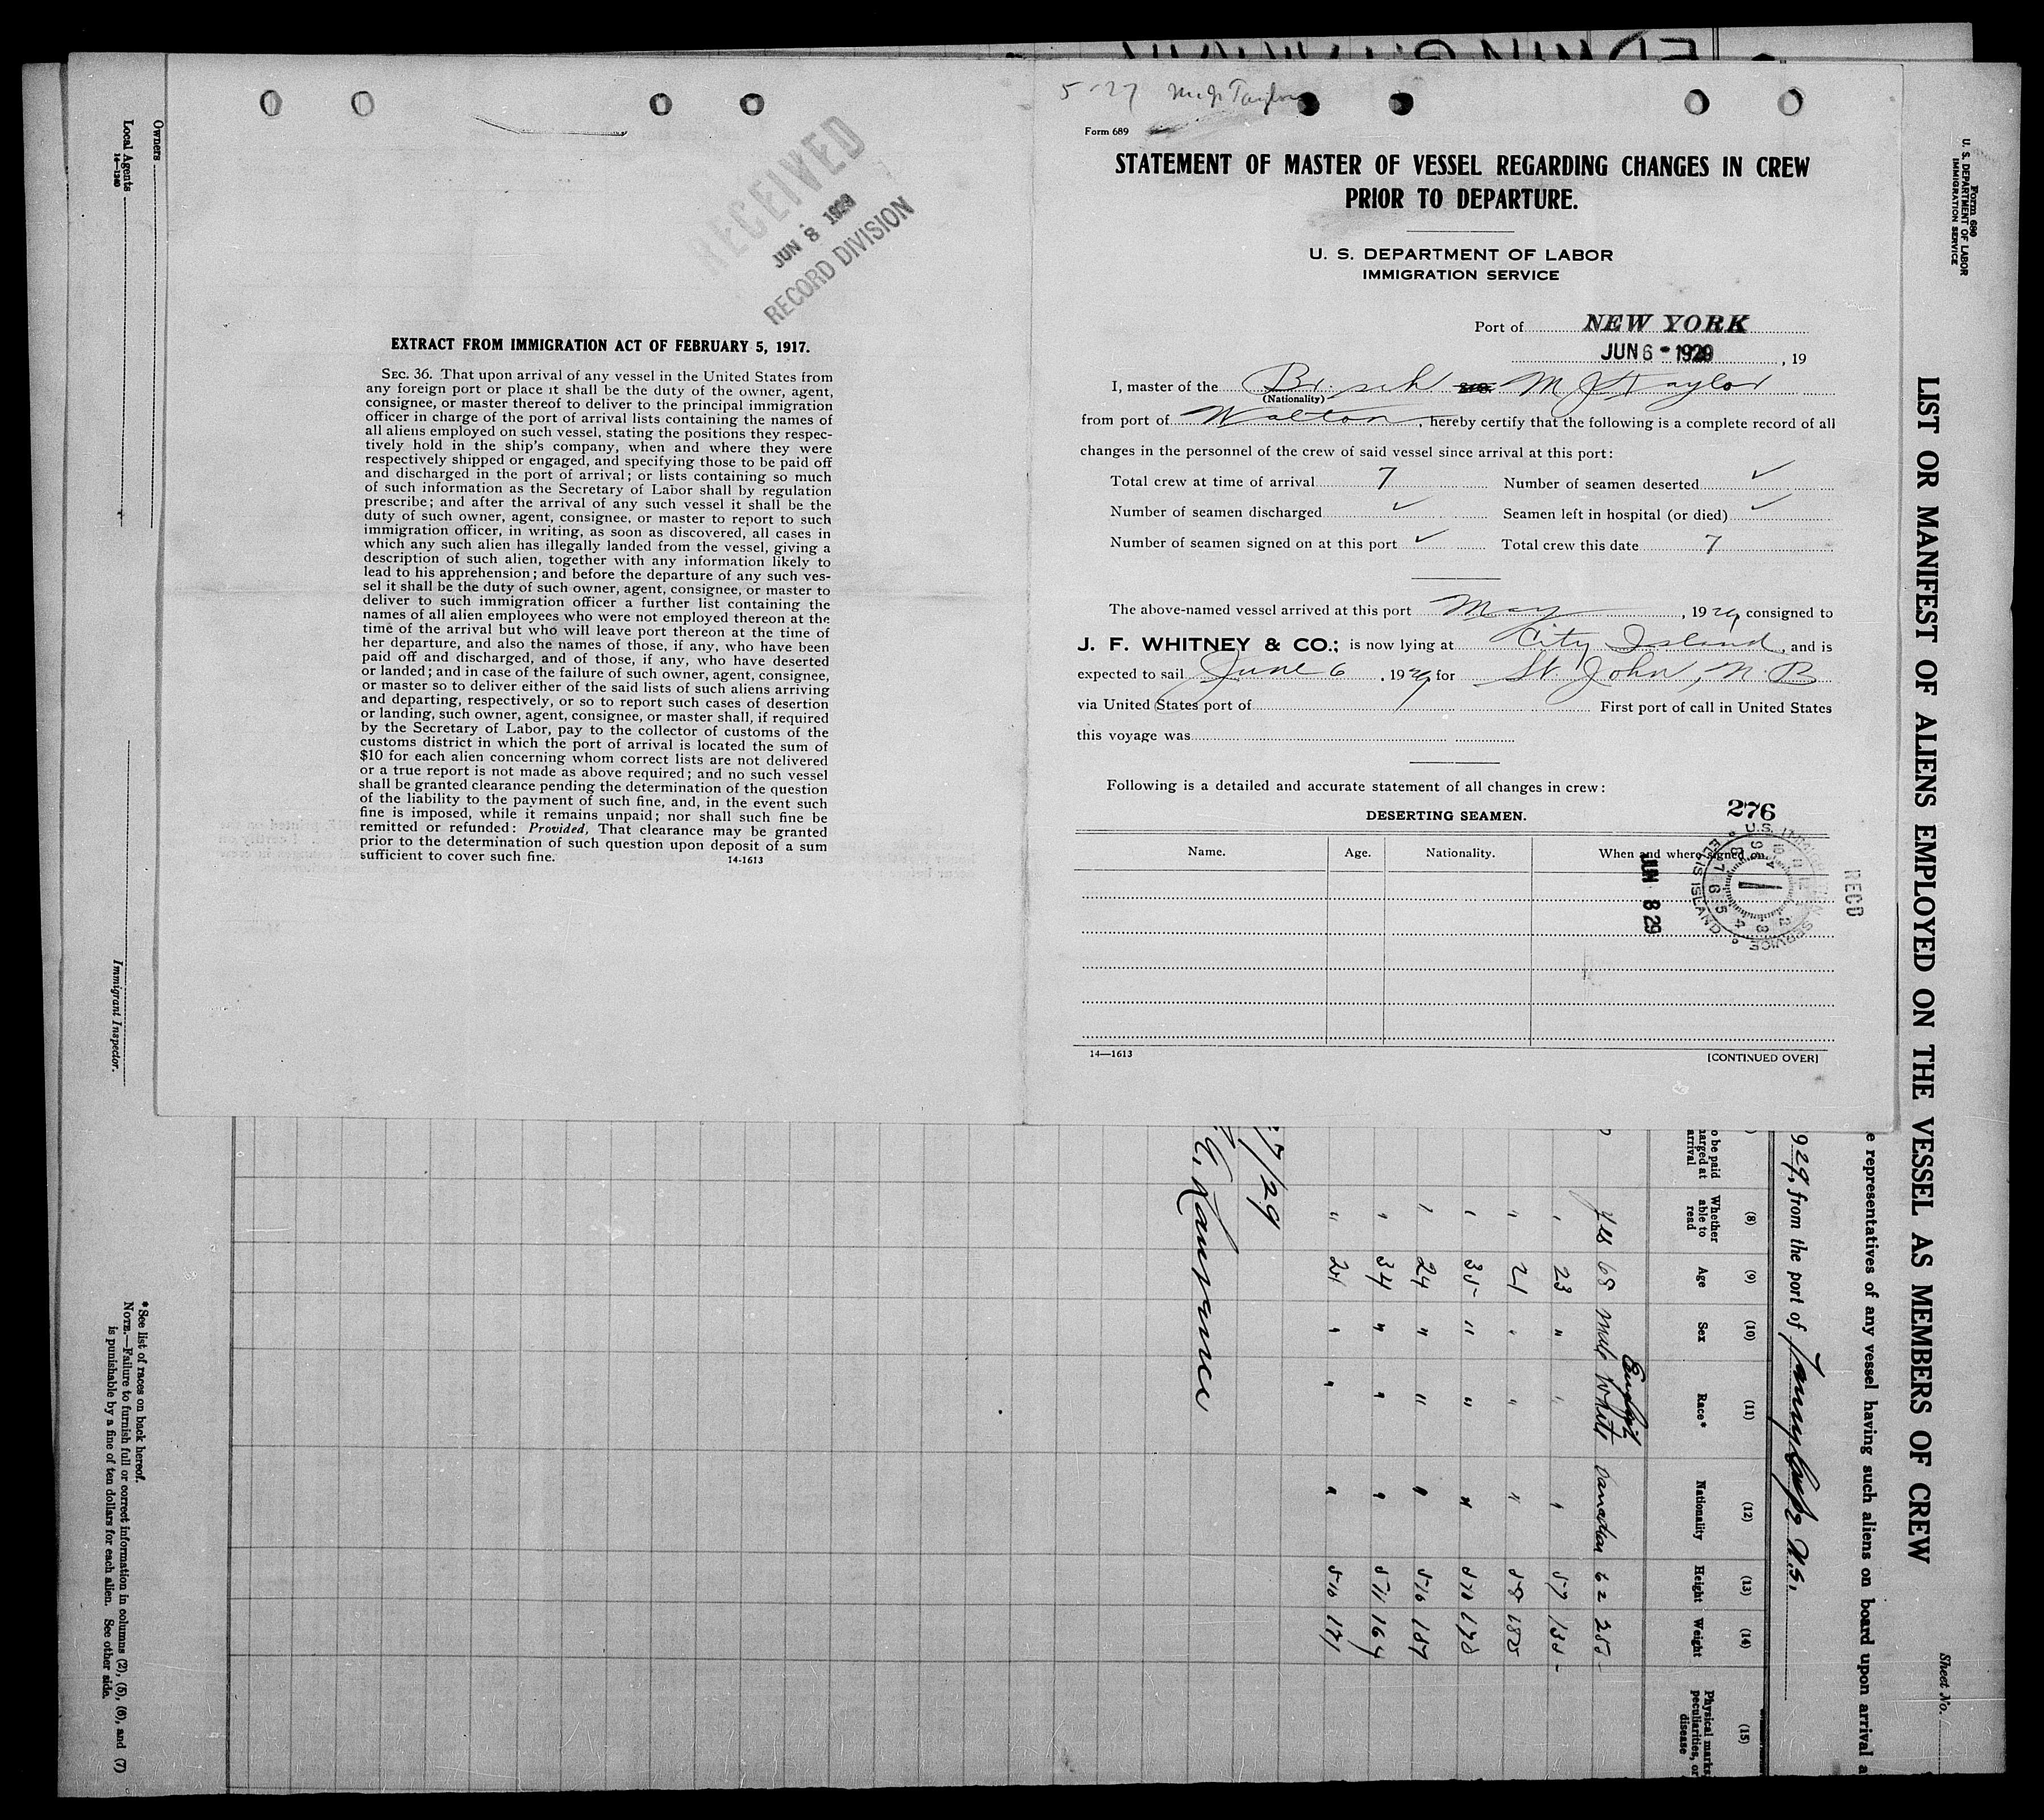 5-27 M J Taylor
Form 689
STATEMENT OF MASTER OF VESSEL REGARDING CHANGES IN CREW
PRIOR TO DEPARTURE.
U. S. DEPARTMENT OF LABOR
IMMIGRATION SERVICE
Port of NEW YORK
JUN 6 - 1929, 19
I, master of the Br. sch M J Taylor
(Nationality)
from port of Walton, hereby certify that the following is a complete record of all
changes in the personnel of the crew of said vessel since arrival at this port:
Total crew at time of arrival 7 Number of seamen deserted ✓
Number of seamen discharged ✓ Seamen left in hospital (or died) ✓
Number of seamen signed on at this port ✓ Total crew this date 7
The above-named vessel arrived at this port May, 1929, consigned to
J. F. WHITNEY & CO.; is now lying at City Island, and is
expected to sail June 6, 1929 for St. John, N B
via United States port of First port of call in United States
this voyage was
Following is a detailed and accurate statement of all changes in crew:
276
DESERTING SEAMEN.
Name. Age. Nationality. When and where signed on.
U.S. IMMIGRATION SERVICE
ELLIS ISLAND
JUN 8 29
RECD
14—1613 [CONTINUED OVER]
RECEIVED
JUN 8 1929
RECORD DIVISION
EXTRACT FROM IMMIGRATION ACT OF FEBRUARY 5, 1917.
SEC. 36. That upon arrival of any vessel in the United States from
any foreign port or place it shall be the duty of the owner, agent,
consignee, or master thereof to deliver to the principal immigration
officer in charge of the port of arrival lists containing the names of
all aliens employed on such vessel, stating the positions they respec-
tively hold in the ship's company, when and where they were
respectively shipped or engaged, and specifying those to be paid off
and discharged in the port of arrival; or lists containing so much
of such information as the Secretary of Labor shall by regulation
prescribe; and after the arrival of any such vessel it shall be the
duty of such owner, agent, consignee, or master to report to such
immigration officer, in writing, as soon as discovered, all cases in
which any such alien has illegally landed from the vessel, giving a
description of such alien, together with any information likely to
lead to his apprehension; and before the departure of any such ves-
sel it shall be the duty of such owner, agent, consignee, or master to
deliver to such immigration officer a further list containing the
names of all alien employees who were not employed thereon at the
time of the arrival but who will leave port thereon at the time of
her departure, and also the names of those, if any, who have been
paid off and discharged, and of those, if any, who have deserted
or landed; and in case of the failure of such owner, agent, consignee,
or master so to deliver either of the said lists of such aliens arriving
and departing, respectively, or so to report such cases of desertion
or landing, such owner, agent, consignee, or master shall, if required
by the Secretary of Labor, pay to the collector of customs of the
customs district in which the port of arrival is located the sum of
$10 for each alien concerning whom correct lists are not delivered
or a true report is not made as above required; and no such vessel
shall be granted clearance pending the determination of the question
of the liability to the payment of such fine, and, in the event such
fine is imposed, while it remains unpaid; nor shall such fine be
remitted or refunded: Provided, That clearance may be granted
prior to the determination of such question upon deposit of a sum
sufficient to cover such fine. 14-1613
Form 680
U. S. DEPARTMENT OF LABOR
IMMIGRATION SERVICE
Sheet No.
LIST OR MANIFEST OF ALIENS EMPLOYED ON THE VESSEL AS MEMBERS OF CREW
e representatives of any vessel having such aliens on board upon arrival a
929, from the port of N.S.
(8) (9) (10) (11) (12) (13) (14) (15)
o be paid
harged at
arrival
Whether
able to
read
Age Sex Race* Nationality Height Weight Physical marks,
peculiarities, or
disease
English
yes 68 male white Canadian 6 2 255
" 23 " " " 5 7 135
" 21 " " " 5 8
" 35 " " "
" 24 " " " 5 10
" 34 " " " 5 11 164
" 21 " " " 5 10 171
7/29
Owners
Local Agents
14—1240
Immigrant Inspector.
* See list of races on back hereof.
NOTE.—Failure to furnish full or correct information in columns (2), (5), (6), and (7)
is punishable by a fine of ten dollars for each alien. See other side.